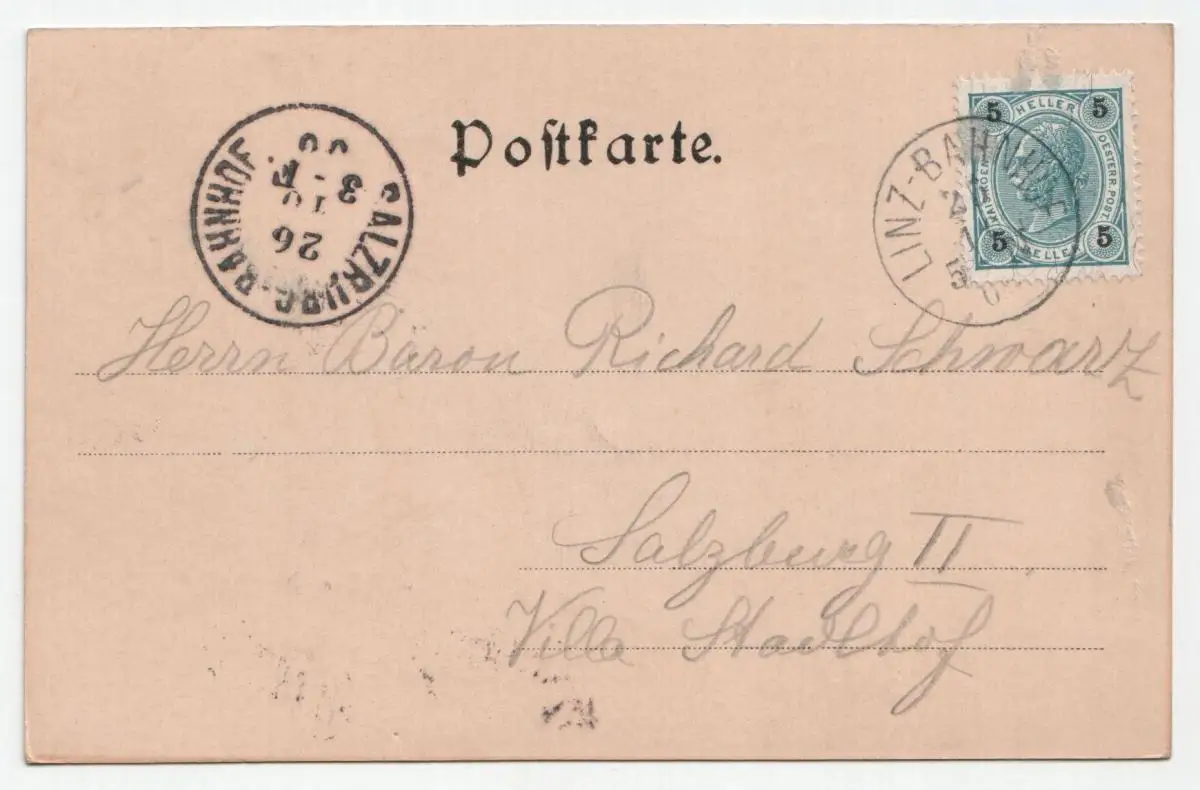 Postkarte.
SALZBURG-BAHNHOF
26
10
3-F
00
LINZ-BAHNHOF
5 HELLER 5
KAIS.KOEN.
OESTERR.POST.
5 HELLER 5
Herrn Baron Richard Schwarz
Salzburg II
Villa Stadlhof